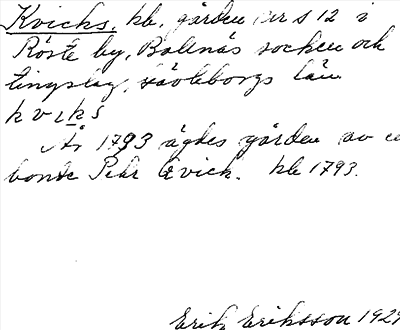 Kvicks, kb, gården Nr 12 i
Röste by, Bollnäs socken och
tingslag, Gävleborgs län
kviks
År 1793 ägdes gården av en
bonde Pehr Qvick. kb 1793.
Erik Eriksson 1929